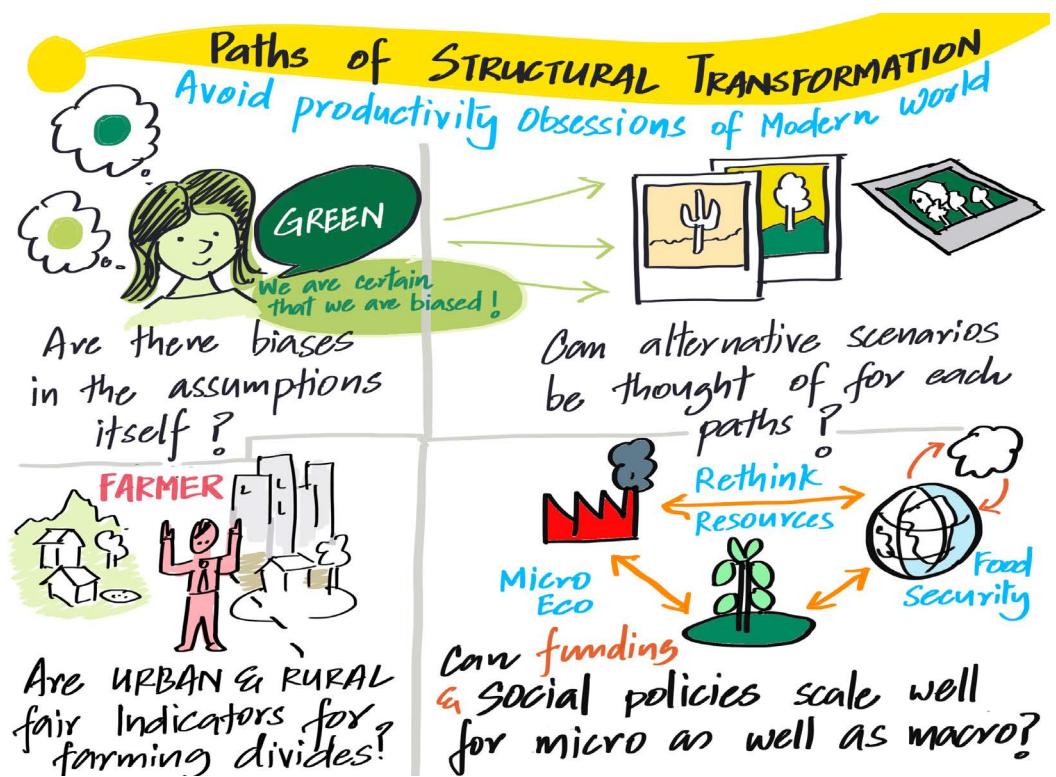 Paths of STRUCTURAL TRANSFORMATION
Avoid productivity Obsessions of Modern World
GREEN
We are certain
that we are biased!
Are there biases
in the assumptions
itself?
Can alternative scenarios
be thought of for each
paths?
FARMER
Are URBAN & RURAL
fair Indicators for
farming divides?
Rethink
Resources
Micro
Eco
Food
Security
Can funding
& Social policies scale well
for micro as well as macro?